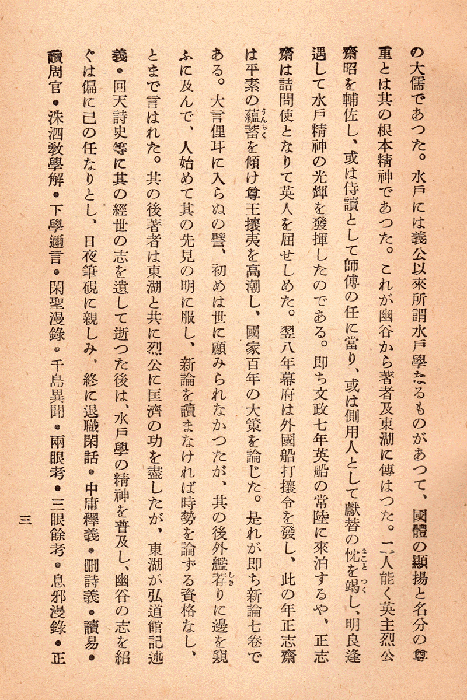 の大儒であつた。水戸には義公以來所謂水戸學なるものがあつて、國體の顯揚と名分の尊
重とは其の根本精神であつた。これが幽谷から著者及東湖に傳はつた。二人能く英主烈公
齋昭を輔佐し、或は侍讀として師傅の任に當り、或は側用人として獻替の忱を竭し、明良逢
遇して水戸精神の光輝を發揮したのである。即ち文政七年英船の常陸に來泊するや、正志
齋は詰問使となりて英人を屈せしめた。翌八年幕府は外國船打攘令を發し、此の年正志齋
は平素の蘊蓄を傾け尊王攘夷を高潮し、國家百年の大策を論じた。是れが即ち新論七卷で
ある。大言俚耳に入らぬの譬、初めは世に顧みられなかつたが、其の後外艦荐りに邊を覬
ふに及んで、人始めて其の先見の明に服し、新論を讀まなければ時勢を論ずる資格なし、
とまで言はれた。其の後著者は東湖と共に烈公に匡濟の功を盡したが、東湖が弘道館記述
義・回天詩史等に其の經世の志を遺して逝つた後は、水戸學の精神を普及し、幽谷の志を紹
ぐは偏に己の任なりとし、日夜筆硯に親しみ、終に退職閑話・中庸釋義・刪詩義・讀易・
讀周官・洙泗敎學解・下學邇言・閑聖漫錄・千島異聞・兩眼考・三眼餘考・息邪漫錄・正
三